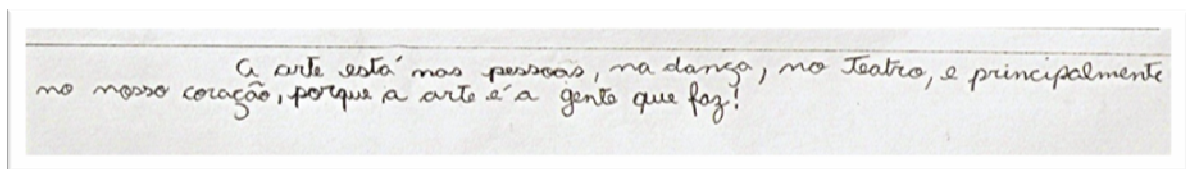 A arte está nas pessoas, na dança, no Teatro, e principalmente
no nosso coração, porque a arte é a gente que faz!